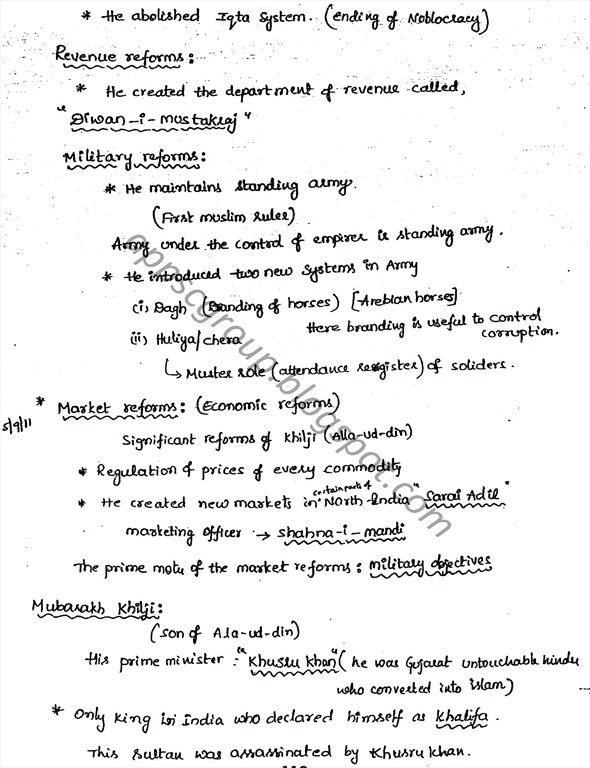 * He abolished Iqta System. (ending of Noblocracy)
Revenue reforms:
* He created the department of revenue called,
"Diwan-i-mustakraj"
Military reforms:
* He maintains standing army.
(First muslim ruler)
Army under the control of empirer is standing army.
* He introduced two new systems in Army
(i) Dagh (Branding of horses) [Arebian horses]
Here branding is useful to control
corruption.
(ii) Huliya/chera
↳ Muster role (attendance register) of soliders.
* Market reforms: (Economic reforms)
5/9/11
Significant reforms of Khilji (Alla-ud-din)
* Regulation of prices of every commodity
* He created new markets in certain parts of North-India "Sarai Adil"
marketing officer → shahna-i-mandi
The prime motu of the market reforms: military objectives
Mubarakh Khilji:
(son of Ala-ud-din)
His prime minister: "Khusru khan" (he was Gujarat untouchable hindu
who converted into islam)
* Only king in India who declared himself as khalifa.
This sultan was assassinated by Khusru khan.
appscgroup.blogspot.com